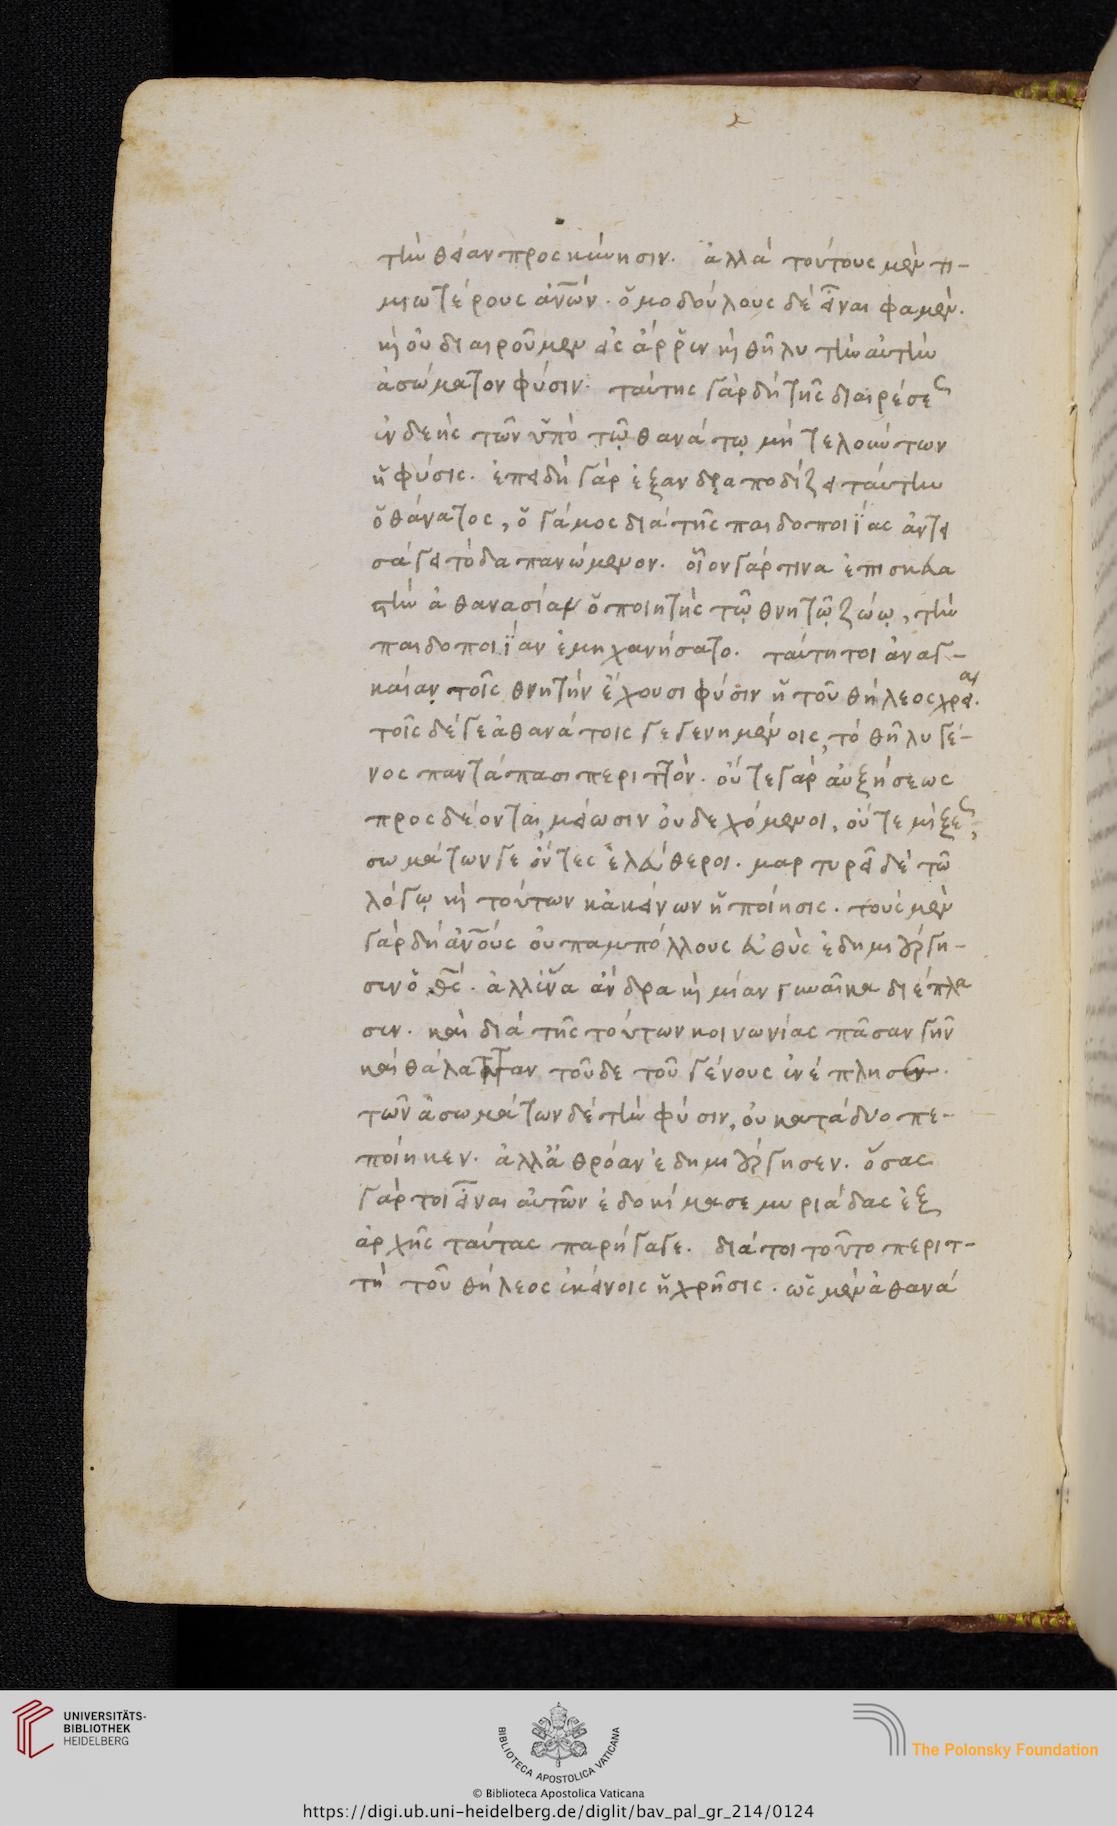 τὴν θείαν προσκύνησιν. ἀλλὰ τούτους μὲν τι-
μιωτέρους ἀν̅ων. ὁμοδούλους δὲ εἶναι φαμέν.
κỳ οὐ διαιροῦμεν εἰς ἄρρεν κỳ θῆλυ τὴν αὐτὴν
ἀσώματον φύσιν. ταύτης γὰρ δὴ τῆς διαιρέσεως
ἐνδεὴς τῶν ὑπὸ τῷ θανάτῳ μὴ τελούντων
ἡ φύσις. ἐπειδὴ γὰρ ἐξανδραποδίζει ταύτην
ὁ θάνατος, ὁ γάμος διὰ τῆς παιδοποιΐας ἀντει
σάγει τὸ δαπανώμενον. οἷον γάρ τινα ἐπισκευα
τὴν ἀθανασίαν ὁ ποιητὴς τῷ θνητῷ ζώῳ, τὴν
παιδοποιΐαν ἐμηχανήσατο. ταύτῃ τοι ἀναγ-
καίαν τοῖς θνητὴν ἔχουσι φύσιν ἡ τοῦ θήλεος χρεία.
τοῖς δέ γε ἀθανάτοις γεγενημένοις, τὸ θῆλυ γέ-
νος παντάπασι περιττόν. οὔτε γὰρ αὐξήσεως
προσδέονται, μείωσιν οὐ δεχόμενοι, οὔτε μίξεως,
σωμάτων γε ὄντες ἐλεύθεροι. μαρτυρεῖ δὲ τῶ
λόγῳ κỳ τούτων κἀκείνων ἡ ποίησις. τοὺς μὲν
γὰρ δὴ ἀν̅ους οὐ παμπόλλους εὐθὺς ἐδημιούργη-
σεν ὁ θ̅ς. ἀλλ' ἕνα ἄνδρα κỳ μίαν γυναῖκα διέπλα
σεν. καὶ διὰ τῆς τούτων κοινωνίας πᾶσαν γῆν
καὶ θάλατταν τοῦδε τοῦ γένους ἐνέπλησεν.
τῶν ἀσωμάτων δὲ τὴν φύσιν, οὐ κατὰ δύο πε-
ποίηκεν. ἀλλ' ἀθρόαν ἐδημιούργησεν. ὅσας
γάρ τοι εἶναι αὐτῶν ἐδοκίμασε μυριάδας ἐξ
ἀρχῆς ταύτας παρήγαγε. διά τοι τοῦτο περιτ-
τὴ τοῦ θήλεος ἐκείνοις ἡ χρῆσις. ὡς μὲν ἀθανά
UNIVERSITÄTS-
BIBLIOTHEK
HEIDELBERG
BIBLIOTECA APOSTOLICA VATICANA
The Polonsky Foundation
© Biblioteca Apostolica Vaticana
https://digi.ub.uni-heidelberg.de/diglit/bav_pal_gr_214/0124